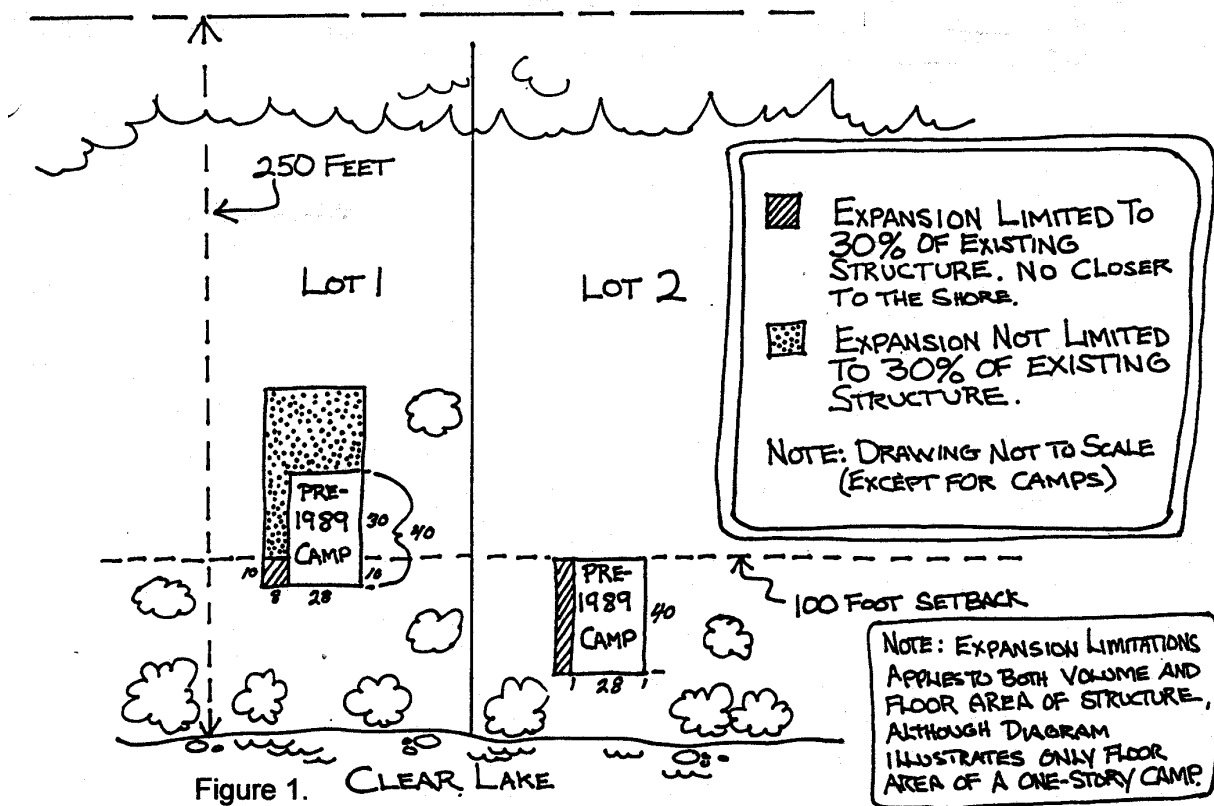 250 FEET
LOT 1
LOT 2
EXPANSION LIMITED TO
30% OF EXISTING
STRUCTURE. NO CLOSER
TO THE SHORE.
EXPANSION NOT LIMITED
TO 30% OF EXISTING
STRUCTURE.
NOTE: DRAWING NOT TO SCALE
(EXCEPT FOR CAMPS)
PRE-
1989
CAMP
30
40
10
10
8
28
PRE-
1989
CAMP
40
28
100 FOOT SETBACK
NOTE: EXPANSION LIMITATIONS
APPLIES TO BOTH VOLUME AND
FLOOR AREA OF STRUCTURE,
ALTHOUGH DIAGRAM
ILLUSTRATES ONLY FLOOR
AREA OF A ONE-STORY CAMP.
Figure 1.
CLEAR LAKE